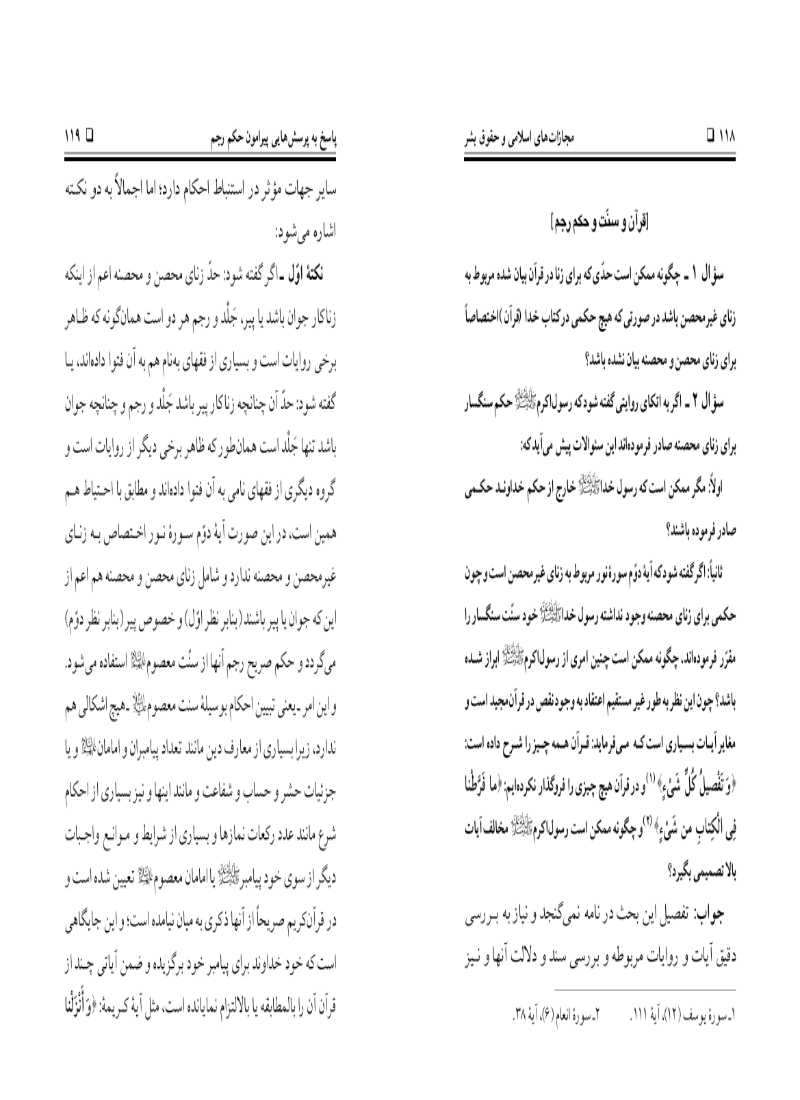 ۱۱۸ ❑ مجازات‌های اسلامی و حقوق بشر
[قرآن و سنّت و حکم رجم]
سؤال ۱ ـ چگونه ممکن است حدّی که برای زنا در قرآن بیان شده مربوط به
زنای غیر محصن باشد در صورتی که هیچ حکمی در کتاب خدا (قرآن) اختصاصاً
برای زنای محصن و محصنه بیان نشده باشد؟
سؤال ۲ ـ اگر به اتکای روایتی گفته شود که رسول اکرمﷺ حکم سنگسار
برای زنای محصنه صادر فرموده‌اند این سئوالات پیش می‌آید که:
اولاً: مگر ممکن است که رسول خداﷺ خارج از حکم خداوند حکمی
صادر فرموده باشند؟
ثانیاً: اگر گفته شود که آیهٔ دوّم سورهٔ نور مربوط به زنای غیر محصن است و چون
حکمی برای زنای محصنه وجود نداشته رسول خداﷺ خود سنّت سنگسار را
مقرّر فرموده‌اند، چگونه ممکن است چنین امری از رسول‌اکرمﷺ ابراز شده
باشد؟ چون این نظر به طور غیر مستقیم اعتقاد به وجود نقص در قرآن مجید است و
مغایر آیات بسیاری است که می‌فرماید: قرآن همه چیز را شرح داده است:
﴿وَ تَفْصِیلُ کُلِّ شَیْءٍ﴾(۱) و در قرآن هیچ چیزی را فروگذار نکرده‌ایم: ﴿ما فَرَّطْنا
فِی الْکِتابِ من شَیْءٍ﴾(۲) و چگونه ممکن است رسول اکرمﷺ مخالف آیات
بالا تصمیمی بگیرد؟
جواب: تفصیل این بحث در نامه نمی‌گنجد و نیاز به بررسی
دقیق آیات و روایات مربوطه و بررسی سند و دلالت آنها و نیز
۱ـ سورهٔ یوسف (۱۲)، آیهٔ ۱۱۱. ۲ـ سورهٔ انعام (۶)، آیهٔ ۳۸.
پاسخ به پرسش‌هایی پیرامون حکم رجم ❑ ۱۱۹
سایر جهات مؤثر در استنباط احکام دارد؛ اما اجمالاً به دو نکته
اشاره می‌شود:
نکتهٔ اوّل ـ اگر گفته شود: حدّ زنای محصن و محصنه اعم از اینکه
زناکار جوان باشد یا پیر، جَلْد و رجم هر دو است همان‌گونه که ظاهر
برخی روایات است و بسیاری از فقهای به‌نام هم به آن فتوا داده‌اند، یا
گفته شود: حدّ آن چنانچه زناکار پیر باشد جَلْد و رجم و چنانچه جوان
باشد تنها جَلْد است همان‌طور که ظاهر برخی دیگر از روایات است و
گروه دیگری از فقهای نامی به آن فتوا داده‌اند و مطابق با احتیاط هم
همین است، در این صورت آیهٔ دوّم سورهٔ نور اختصاص به زنای
غیرمحصن و محصنه ندارد و شامل زنای محصن و محصنه هم اعم از
این که جوان یا پیر باشند (بنابر نظر اوّل) و خصوص پیر (بنابر نظر دوّم)
می‌گردد و حکم صریح رجم آنها از سنّت معصوم استفاده می‌شود.
و این امر ـ یعنی تبیین احکام بوسیلهٔ سنت معصوم ـ هیچ اشکالی هم
ندارد، زیرا بسیاری از معارف دین مانند تعداد پیامبران و امامان و یا
جزئیات حشر و حساب و شفاعت و مانند اینها و نیز بسیاری از احکام
شرع مانند عدد رکعات نمازها و بسیاری از شرایط و موانع واجبات
دیگر از سوی خود پیامبرﷺ یا امامان معصوم تعیین شده است و
در قرآن‌کریم صریحاً از آنها ذکری به میان نیامده است؛ و این جایگاهی
است که خود خداوند برای پیامبر خود برگزیده و ضمن آیاتی چند از
قرآن آن را بالمطابقه یا بالالتزام نمایانده است، مثل آیهٔ کریمهٔ: ﴿وَ أَنْزَلْنا